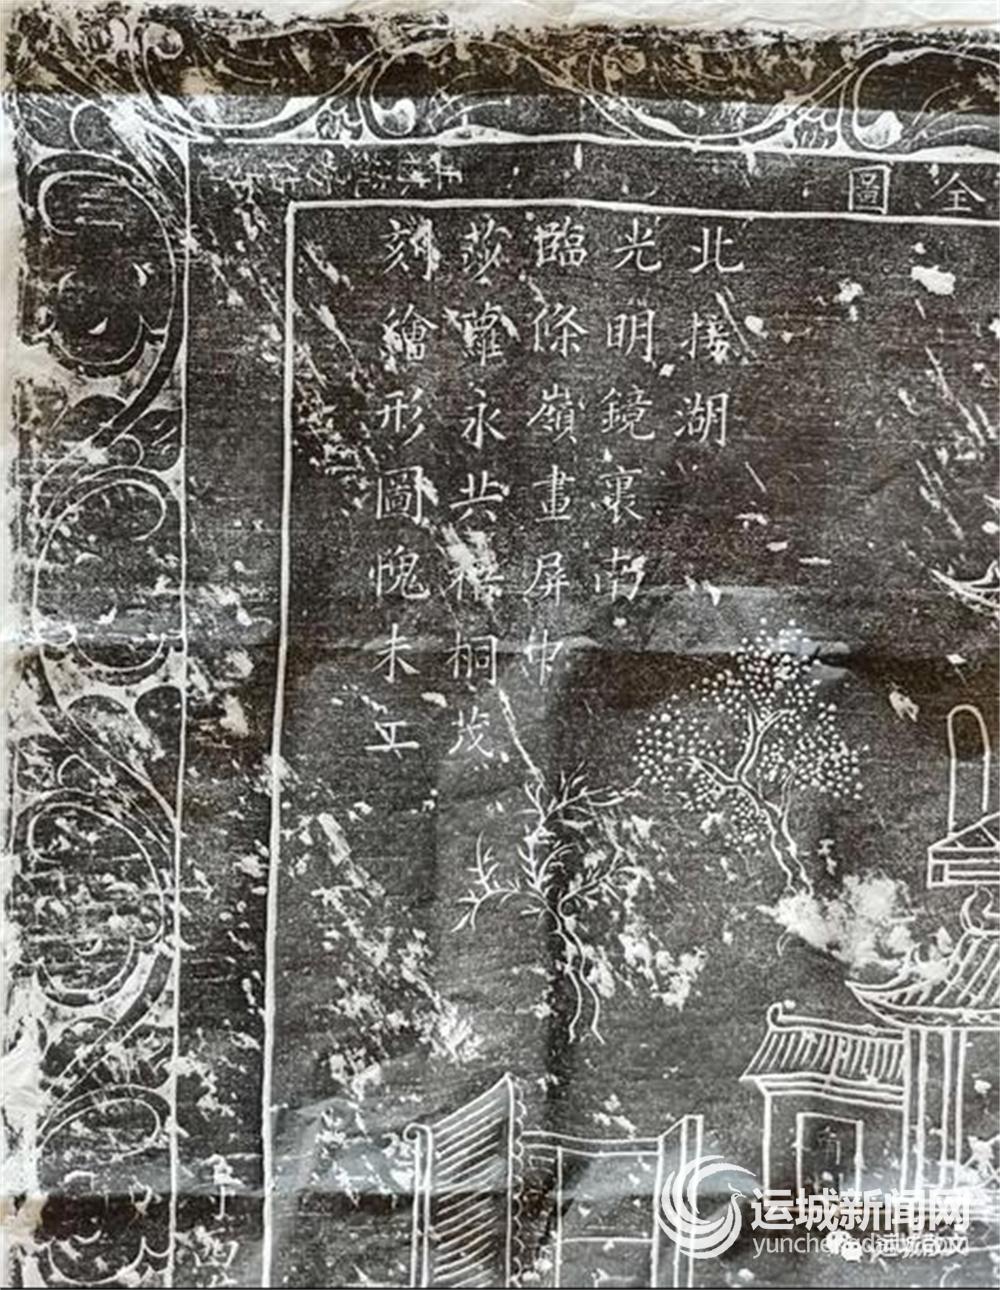 全圖
北接湖
光明鏡裏南
臨條嶺畫屏中
莎蘿永共梧桐茂
刻繪形圖愧未工
运城新闻网
yunchengdaily.com
运城散文